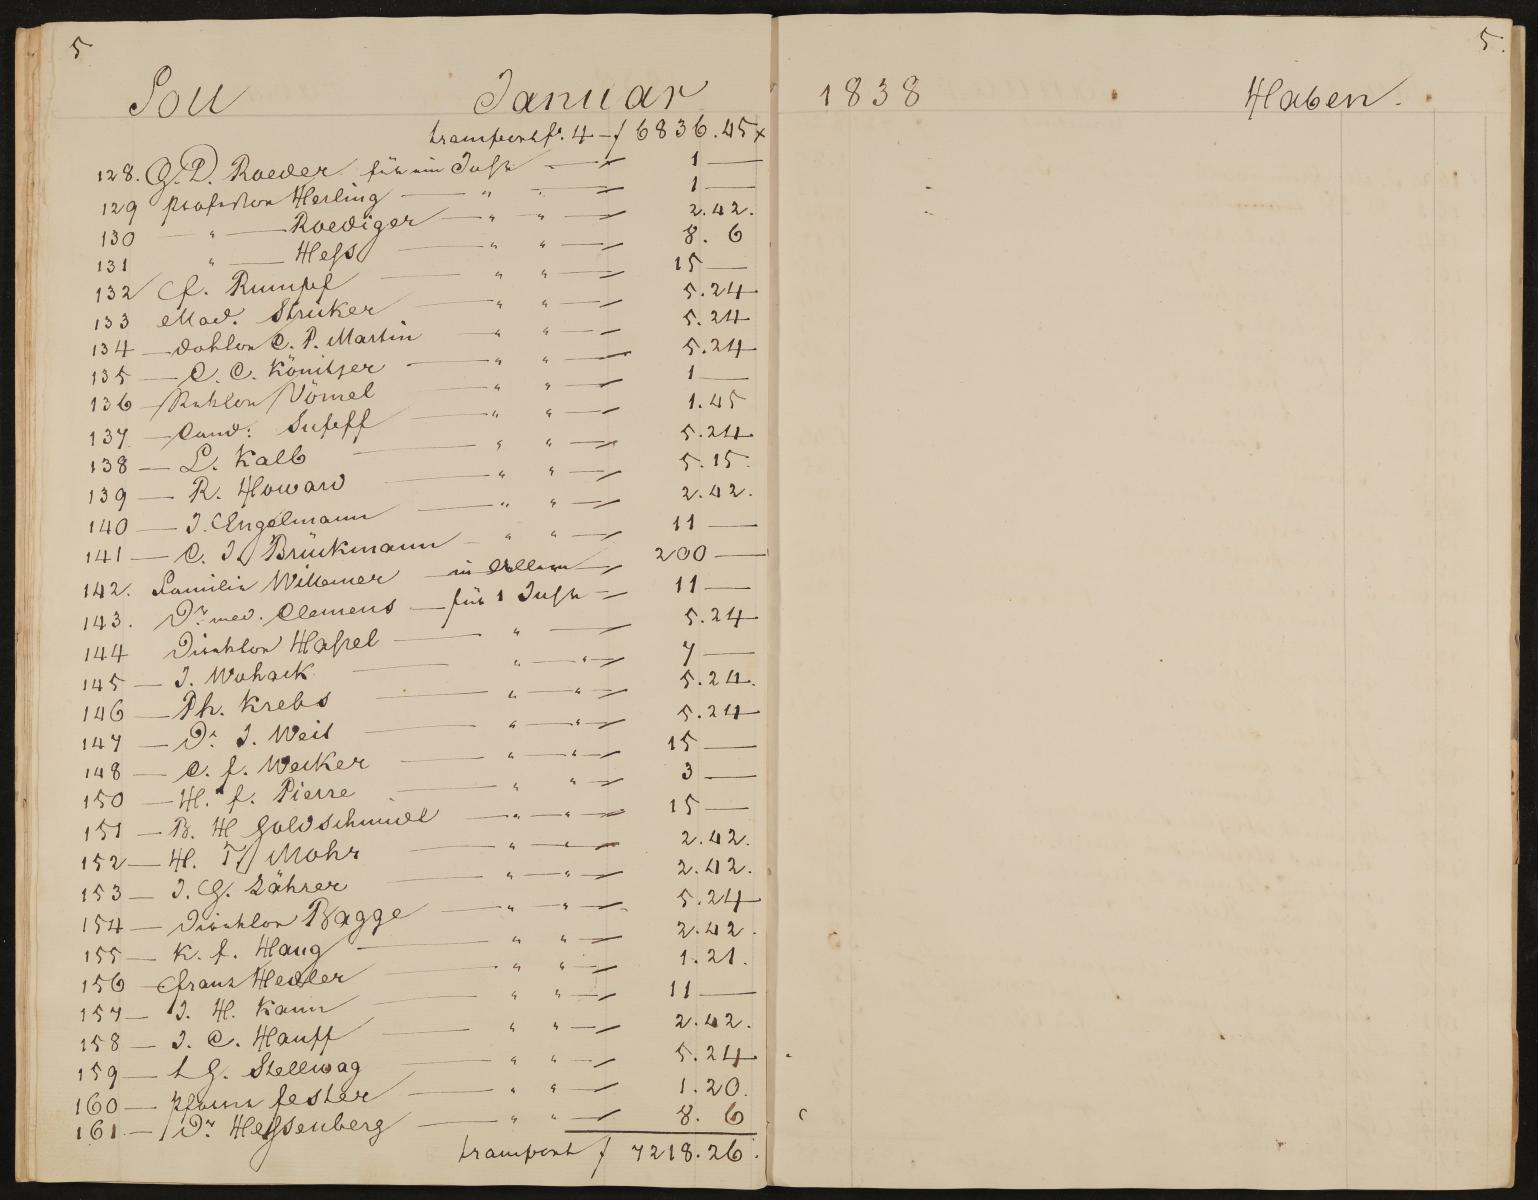 5
Soll Januar
transport fo. 4 – f 6836.45x
128. G. D. Roeder für ein Jahr — 1 —
129 Professor Herling — " " — 1 —
130 — " — Roediger — " " — 2.42.
131 " — Hess — " " — 8. 6
132 F. Rumpf — " " — 15 —
133 Mad. Strüker — " " — 5.24
134 — Doktor C. P. Martin — " " — 5.24
135 — C. C. Könitzer — " " — 5.24
136 — Rektor Vömel — " " — 1 —
137 — Cand: — " " — 1.45
138 — L. Kalb — " " — 5.24
139 — R. Howard — " " — 5.15.
140 — J. Engelmann — " " — 2.42.
141 — C. J. Brückmann — " " — 11 —
142. Familie Willemer — in allem — 200 —
143. Dr. med. Clemens — für 1 Jahr — 11 —
144 Direktor Hassel — " — 5.24
145 — J. Wohack — " — " — 7 —
146 — Ph. Krebs — " — " — 5.24.
147 — Dr J. Weil — " — " — 5.24
148 — C. F. Wecker — " — " — 15 —
150 — H. F. Pierre — " " — 3 —
151 — B. H Goldschmidt — " — " — 15 —
152 — H. T. Mohr — " — " — 2.42.
153 — J. G. Zährer — " — " — 2.42.
154 — Direktor Bagge — " — " — 5.24
155 — K. F. Haug — " " — 2.42.
156 — Franz Hedler — " " — 1.21.
157 — J. H. Kann — " " — 11 —
158 — J. C. Hauff — " " — 2.42.
159 — L G. Stellwag — " " — 5.24
160 — Pfarrer Fester — " " — 1.20.
161 — Dr. Hessenberg — " " — 8. 6
transport f 7218.26.
5.
1838 Haben.